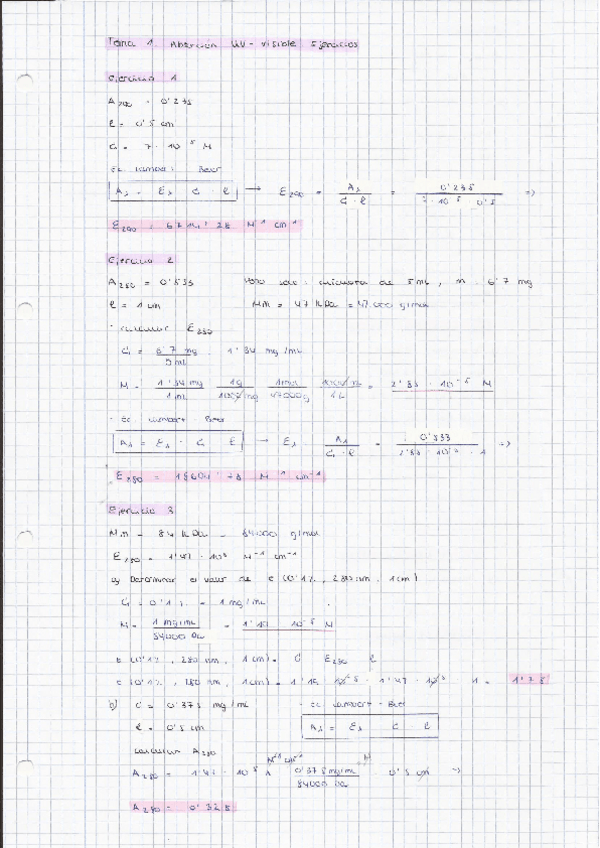 Tema 1. Absorción UV-visible Ejercicios
Ejercicio 1
A₂₉₀ = 0'235
ℓ = 0'5 cm
C = 7 · 10⁻⁵ M
Ec Lambert Beer
Aλ = Ελ · C · ℓ → Ε₂₉₀ = Aλ / C · ℓ = 0'235 / 7 · 10⁻⁵ · 0'5 ⇒
Ε₂₉₀ = 6714' 28 M⁻¹ cm⁻¹
Ejercicio 2
A₂₈₀ = 0'533 cubeta de 5 mL, m = 6'7 mg
ℓ = 1 cm MM = 47 KDa = 47000 g/mol
· calcular Ε₂₈₀
C = 6'7 mg / 5 mL = 1'34 mg/mL
M = 1'34 mg / 1 mL · 1 g / 1000 mg · 1 mol / 47000 g · 1000 mL / 1 L = 2'85 · 10⁻⁵ M
- Ec Lambert - Beer
Aλ = Ελ · C · ℓ → Ελ = Aλ / C · ℓ = 0'533 / 2'85 · 10⁻⁵ · 1 ⇒
Ε₂₈₀ = M⁻¹ cm⁻¹
Ejercicio 3
MM = 84 KDa = 84000 g/mol
Ε₂₈₀ = 1'47 · 10⁵ M⁻¹ cm⁻¹
a) Determinar el valor de ε (0'1%, 280 nm, 1 cm)
C = 0'1% = 1 mg/mL
M = 1 mg/mL / 84000 Da = 1'19 · 10⁻⁵ M
ε (0'1%, 280 nm, 1 cm) = C · Ε₂₈₀ · ℓ
ε (0'1%, 280 nm, 1 cm) = 1'19 · 10⁻⁵ · 1'47 · 10⁵ · 1 =
b) C = 0'375 mg/mL - Ec Lambert - Beer
ℓ = 0'5 cm Aλ = Ελ · C · ℓ
calcular A₂₈₀
A₂₈₀ = 1'47 · 10⁵ M⁻¹ cm⁻¹ · 0'375 mg/mL / 84000 Da · 0'5 cm ⇒
A₂₈₀ = 0'328